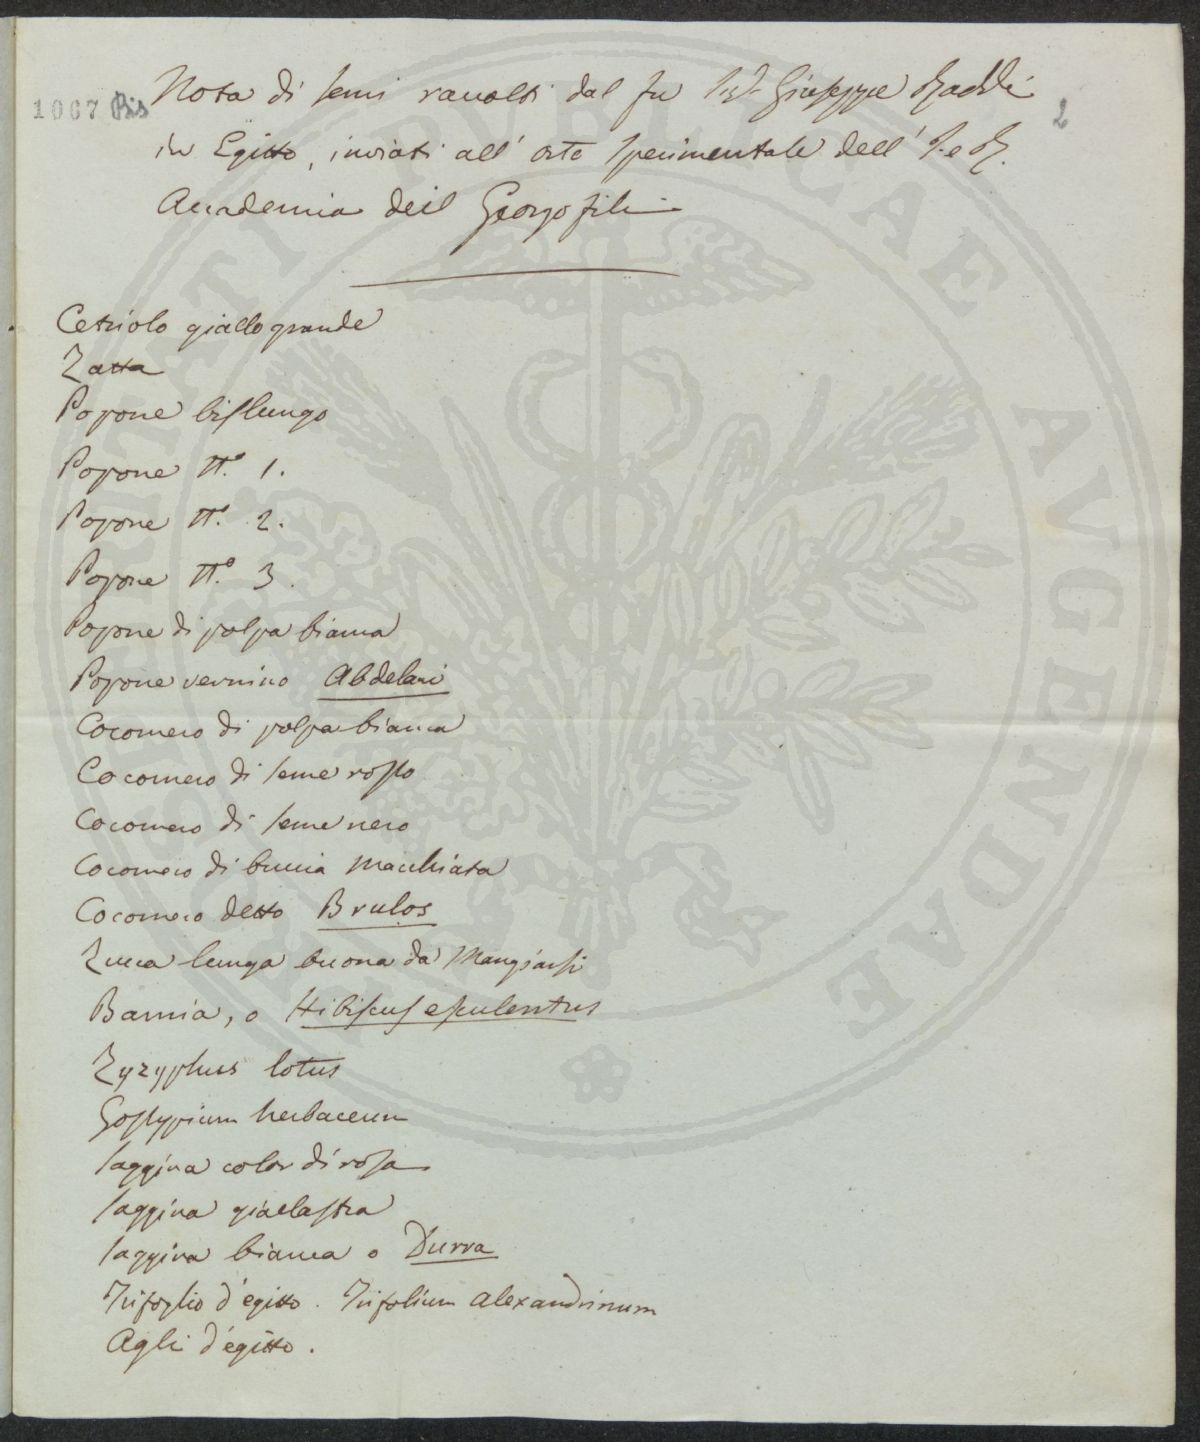 1067 Bis
2
Nota di semi raccolti dal fu Sigr. Giuseppe Raddi
in Egitto, inviati all' orto sperimentale dell' I. e R.
Accademia dei Georgofili
Cetriolo giallo grande
Zatta
Popone bislungo
Popone N.o 1.
Popone N.o 2.
Popone N.o 3.
Popone di polpa bianca
Popone vernino Abdelavi
Cocomero di polpa bianca
Cocomero di seme rosso
Cocomero di seme nero
Cocomero di buccia macchiata
Cocomero detto Brulos
Zucca lunga buona da mangiarsi
Bamia, o Hibiscus esculentus
Zyzyphus lotus
Gossypium herbaceum
Saggina color di rosa
Saggina giallastra
Saggina bianca o Durra
Trifoglio d'egitto. Trifolium alexandrinum
Agli d'egitto.
PUBLICAE AVGENDAE